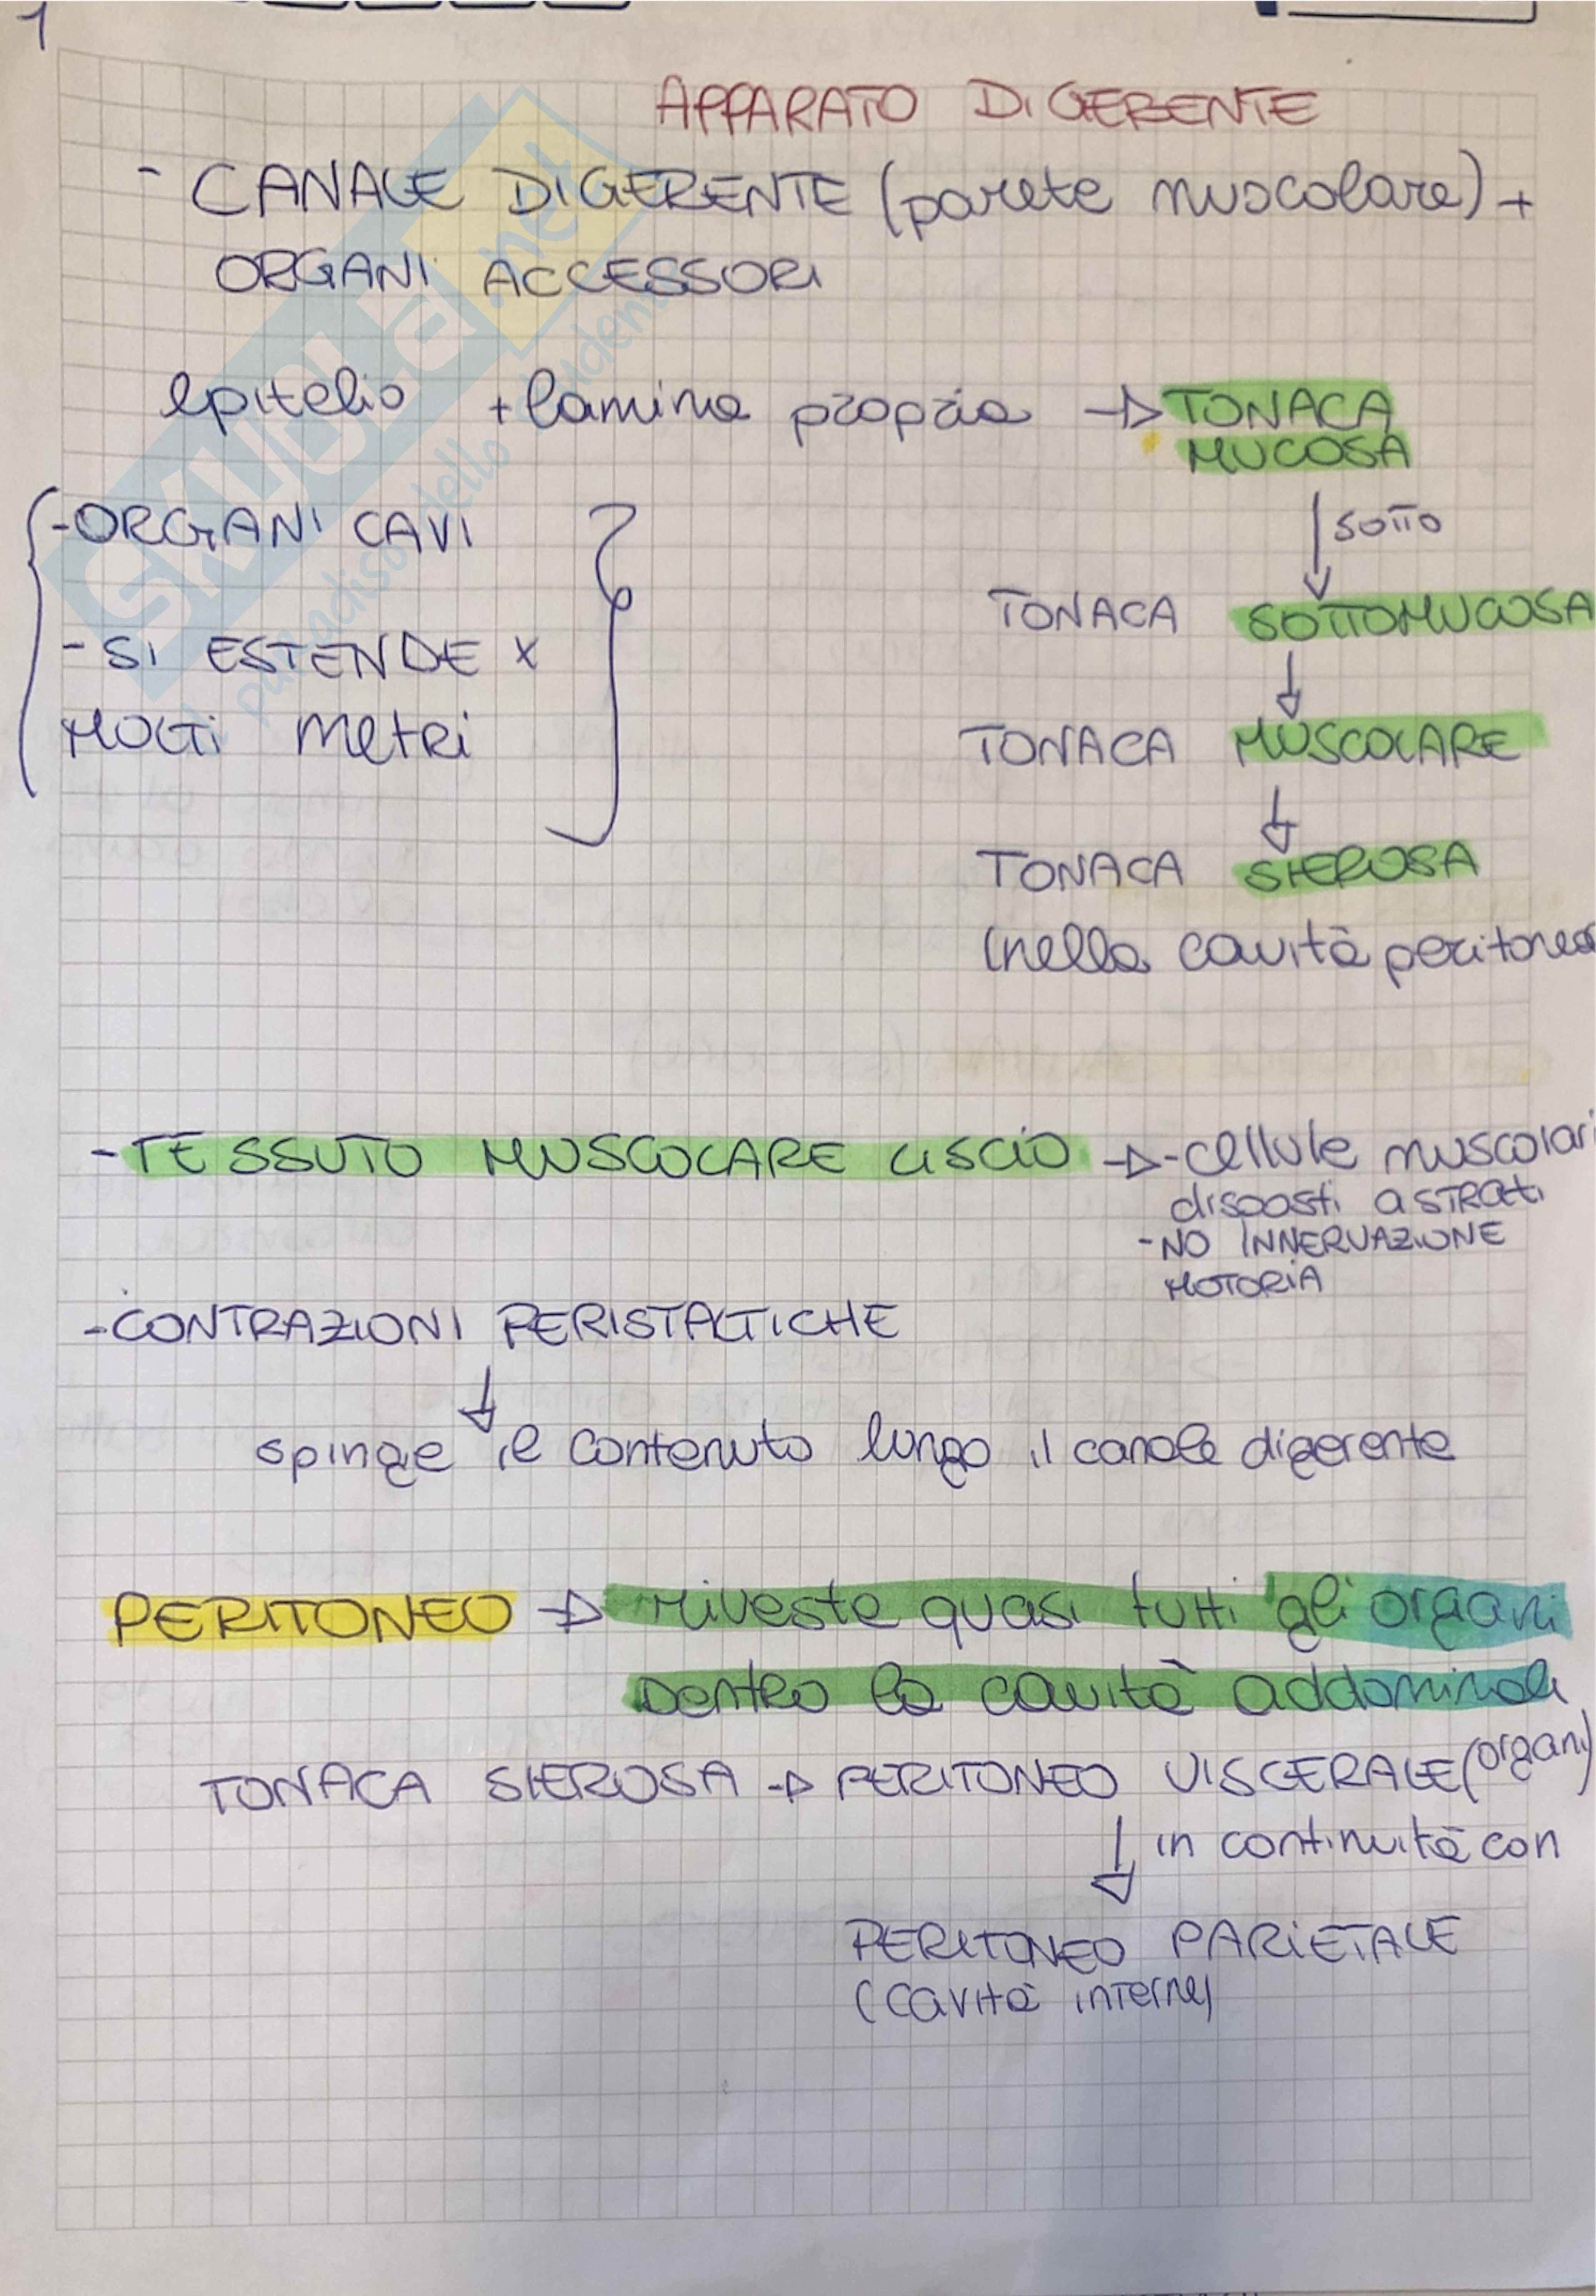 1
APPARATO DIGERENTE
- CANALE DIGERENTE (parete muscolare) +
ORGANI ACCESSORI
epitelio + lamina propria → TONACA
MUCOSA
-ORGANI CAVI
↓ SOTTO
TONACA SOTTOMUCOSA
- SI ESTENDE x
MOLTI metri
↓
TONACA MUSCOLARE
↓
TONACA SIEROSA
(nella cavità peritonea
- TESSUTO MUSCOLARE LISCIO → - cellule muscolari
disposti a STRATI
- NO INNERVAZIONE
MOTORIA
- CONTRAZIONI PERISTALTICHE
↓
spinge il contenuto lungo il canale digerente
PERITONEO → riveste quasi tutti gli organi
dentro la cavità addominale
TONACA SIEROSA → PERITONEO VISCERALE (organi)
↓ in continuità con
PERITONEO PARIETALE
(cavità interne)
SKUOLA.net
il paradiso dello studente